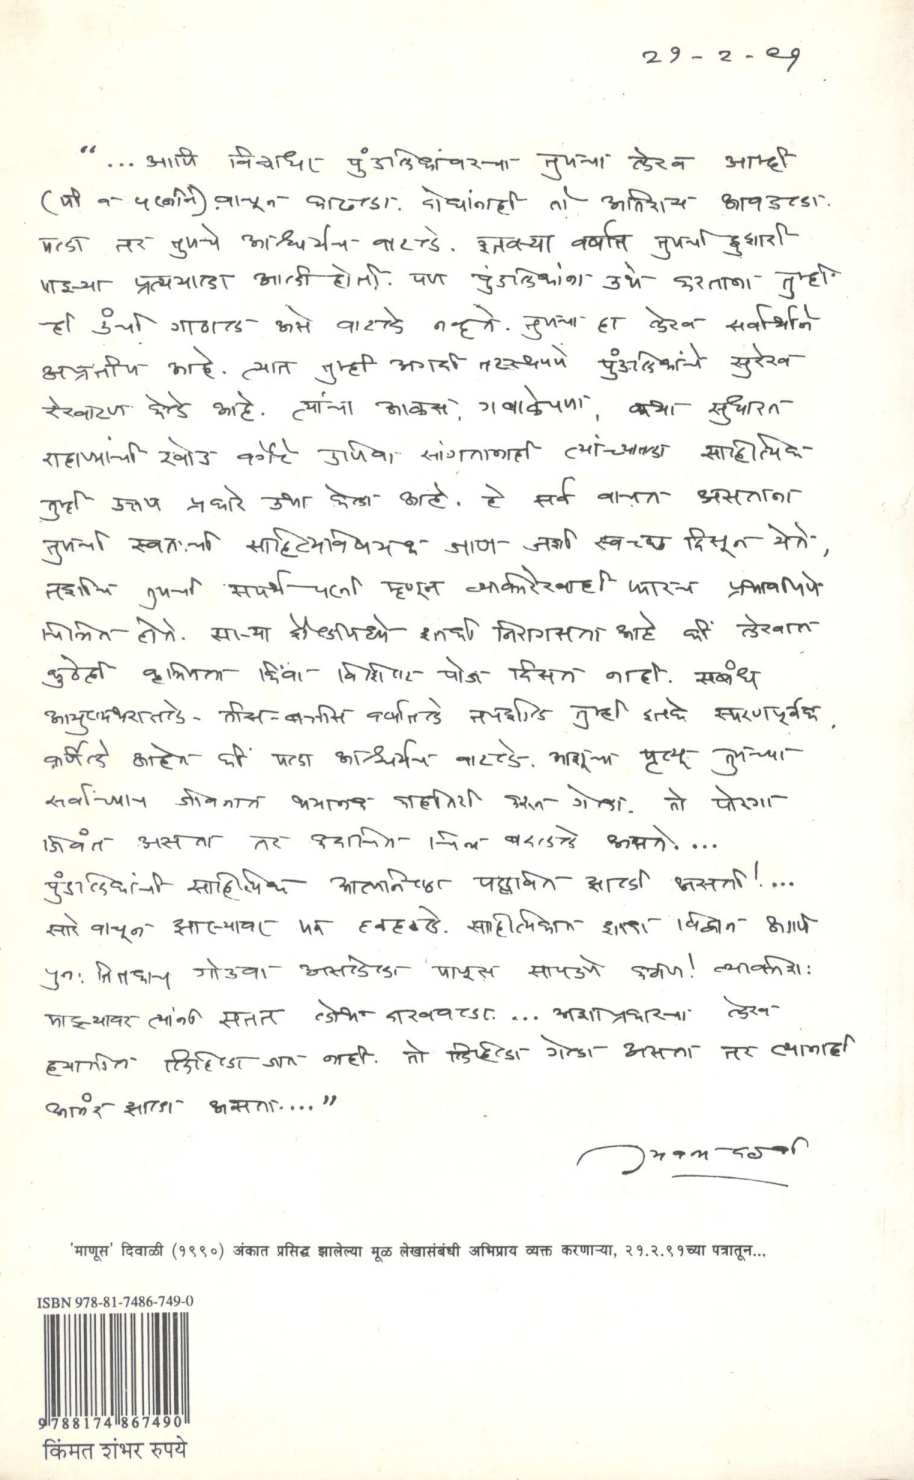 २१ - २ - ९१
“... आणि विद्याधर पुंडलिकांवरचा तुमचा लेख आम्ही
(मी व पत्नीने) वाचून काढला. दोघांनाही तो अतिशय आवडला.
मला तर तुमचे आश्चर्यच वाटले. इतक्या वर्षांत तुमची हुशारी
माझ्या प्रत्ययाला आली होती. पण पुंडलिकांना उभे करताना तुम्ही
ही उंची गाठाल असे वाटले नव्हते. तुमचा हा लेख सर्वार्थाने
अप्रतीम आहे. त्यात तुम्ही अगदी तटस्थपणे पुंडलिकांचे सुरेख
रेखाटण केले आहे. त्यांचा आळस, गबाळेपणा, कथा सुधारत
राहाण्याची खोड वगैरे उणिवा सांगतानाही त्यांच्यातला साहित्यिक
तुम्ही उत्तम प्रकारे उभा केला आहे. हे सर्व वाचत असताना
तुमची स्वतःची साहित्यविषयक जाण जशी स्वच्छ दिसून येते,
तशीच तुमची समर्थ पत्नी म्हणून व्यक्तिरेखाही फारच प्रभावीपणे
चित्रित होते. साऱ्या शैलीमध्ये इतकी निरागसता आहे की लेखात
कुठेही कृत्रिमता किंवा विशिष्ट पोज दिसत नाही. सबंध
आयुष्यभरातले - तीस-बत्तीस वर्षांतले तपशील तुम्ही इतके स्मरणपूर्वक
वर्णिले आहेत की मला आश्चर्यच वाटले. आशूचा मृत्यू तुमच्या
सर्वांच्याच जीवनात भयानक काहीतरी करून गेला. तो पोरगा
जिवंत असता तर कदाचित चित्र बदलले असते. ...
पुंडलिकांची साहित्यिक आत्मनिष्ठा पल्लवित झाली असती! ...
सारे वाचून झाल्यावर मन हळहळले. साहित्यिकात इतका विद्वान आणि
पुनः तितकाच गोडवा असलेला माणूस सापडणे कठीण! व्यक्तीशः
माझ्यावर त्यांनी सतत लोभ दाखवला. ... अशा प्रकारचा लेख
हयातीत लिहिला जात नाही. तो लिहिला गेला असता तर त्यांनाही
आनंद झाला असता....”
जयवंत दळवी
'माणूस' दिवाळी (१९९०) अंकात प्रसिद्ध झालेल्या मूळ लेखासंबंधी अभिप्राय व्यक्त करणाऱ्या, २१.२.९१च्या पत्रातून...
ISBN 978-81-7486-749-0
9 788174 867490
किंमत शंभर रुपये